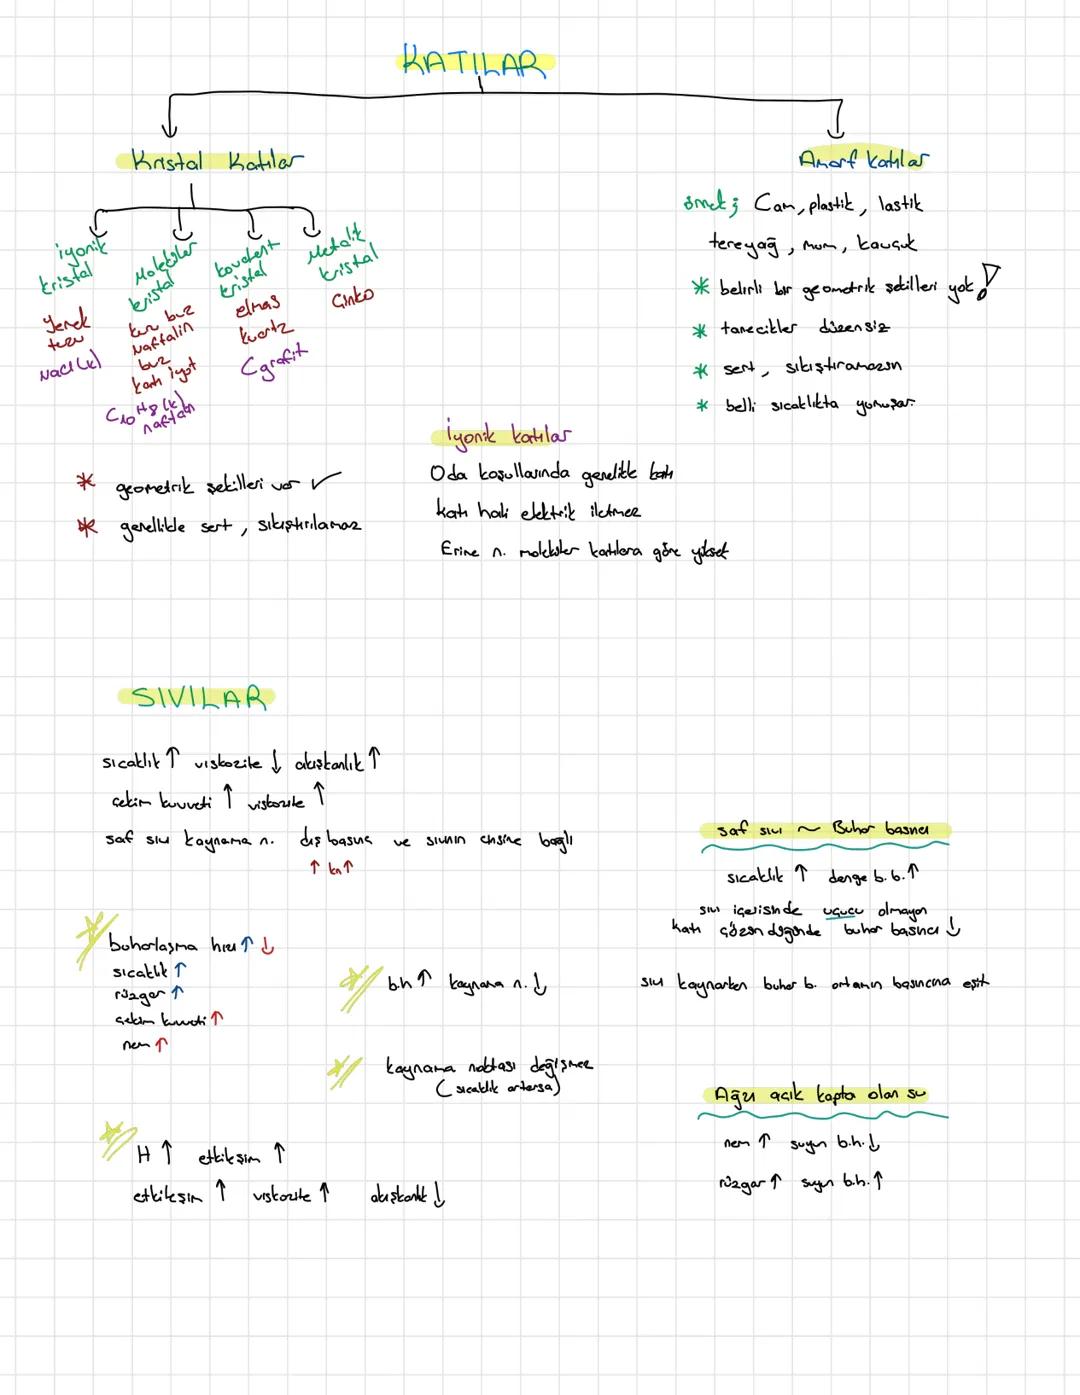 KATILAR
Kristal Katılar
iyonik kristal
Yemek tuzu
NaCl (k)
Moleküler kristal
kuru buz
Naftalin
buz
katı iyot
C10H8 (k)
naftalin
kovalent kristal
elmas
kuartz
C grafit
Metalik kristal
Çinko
* geometrik şekilleri var ✓
* genellikle sert, sıkıştırılamaz
Amorf katılar
örnek; Cam, plastik, lastik
tereyağ, mum, kauçuk
* belirli bir geometrik şekilleri yok!
* tanecikler düzensiz
* sert, sıkıştıramazsın
* belli sıcaklıkta yumuşar.
İyonik katılar
Oda koşullarında genelikle katı
katı hali elektrik iletmez
Erime n. moleküler katılara göre yüksek
SIVILAR
sıcaklık ↑ viskozite ↓ akışkanlık ↑
çekim kuvveti ↑ viskozite ↑
saf sıvı kaynama n. dış basınç ve sıvının cinsine bağlı
↑ kn ↑
buharlaşma hızı ↑ ↓
sıcaklık ↑
rüzgar ↑
çekim kuvveti ↑
nem ↑
b.h ↑ kaynama n. ↓
kaynama noktası değişmez
(sıcaklık artarsa)
H ↑ etkileşim ↑
etkileşim ↑ viskozite ↑ akışkanlık ↓
saf sıvı ~ Buhar basıncı
sıcaklık ↑ denge b.b. ↑
sıvı içerisinde uçucu olmayan
katı çözündüğünde buhar basıncı ↓
sıvı kaynarken buhar b. ortamın basıncına eşit
Ağzı açık kapta olan su
nem ↑ suyun b.h. ↓
rüzgar ↑ suyun b.h. ↑